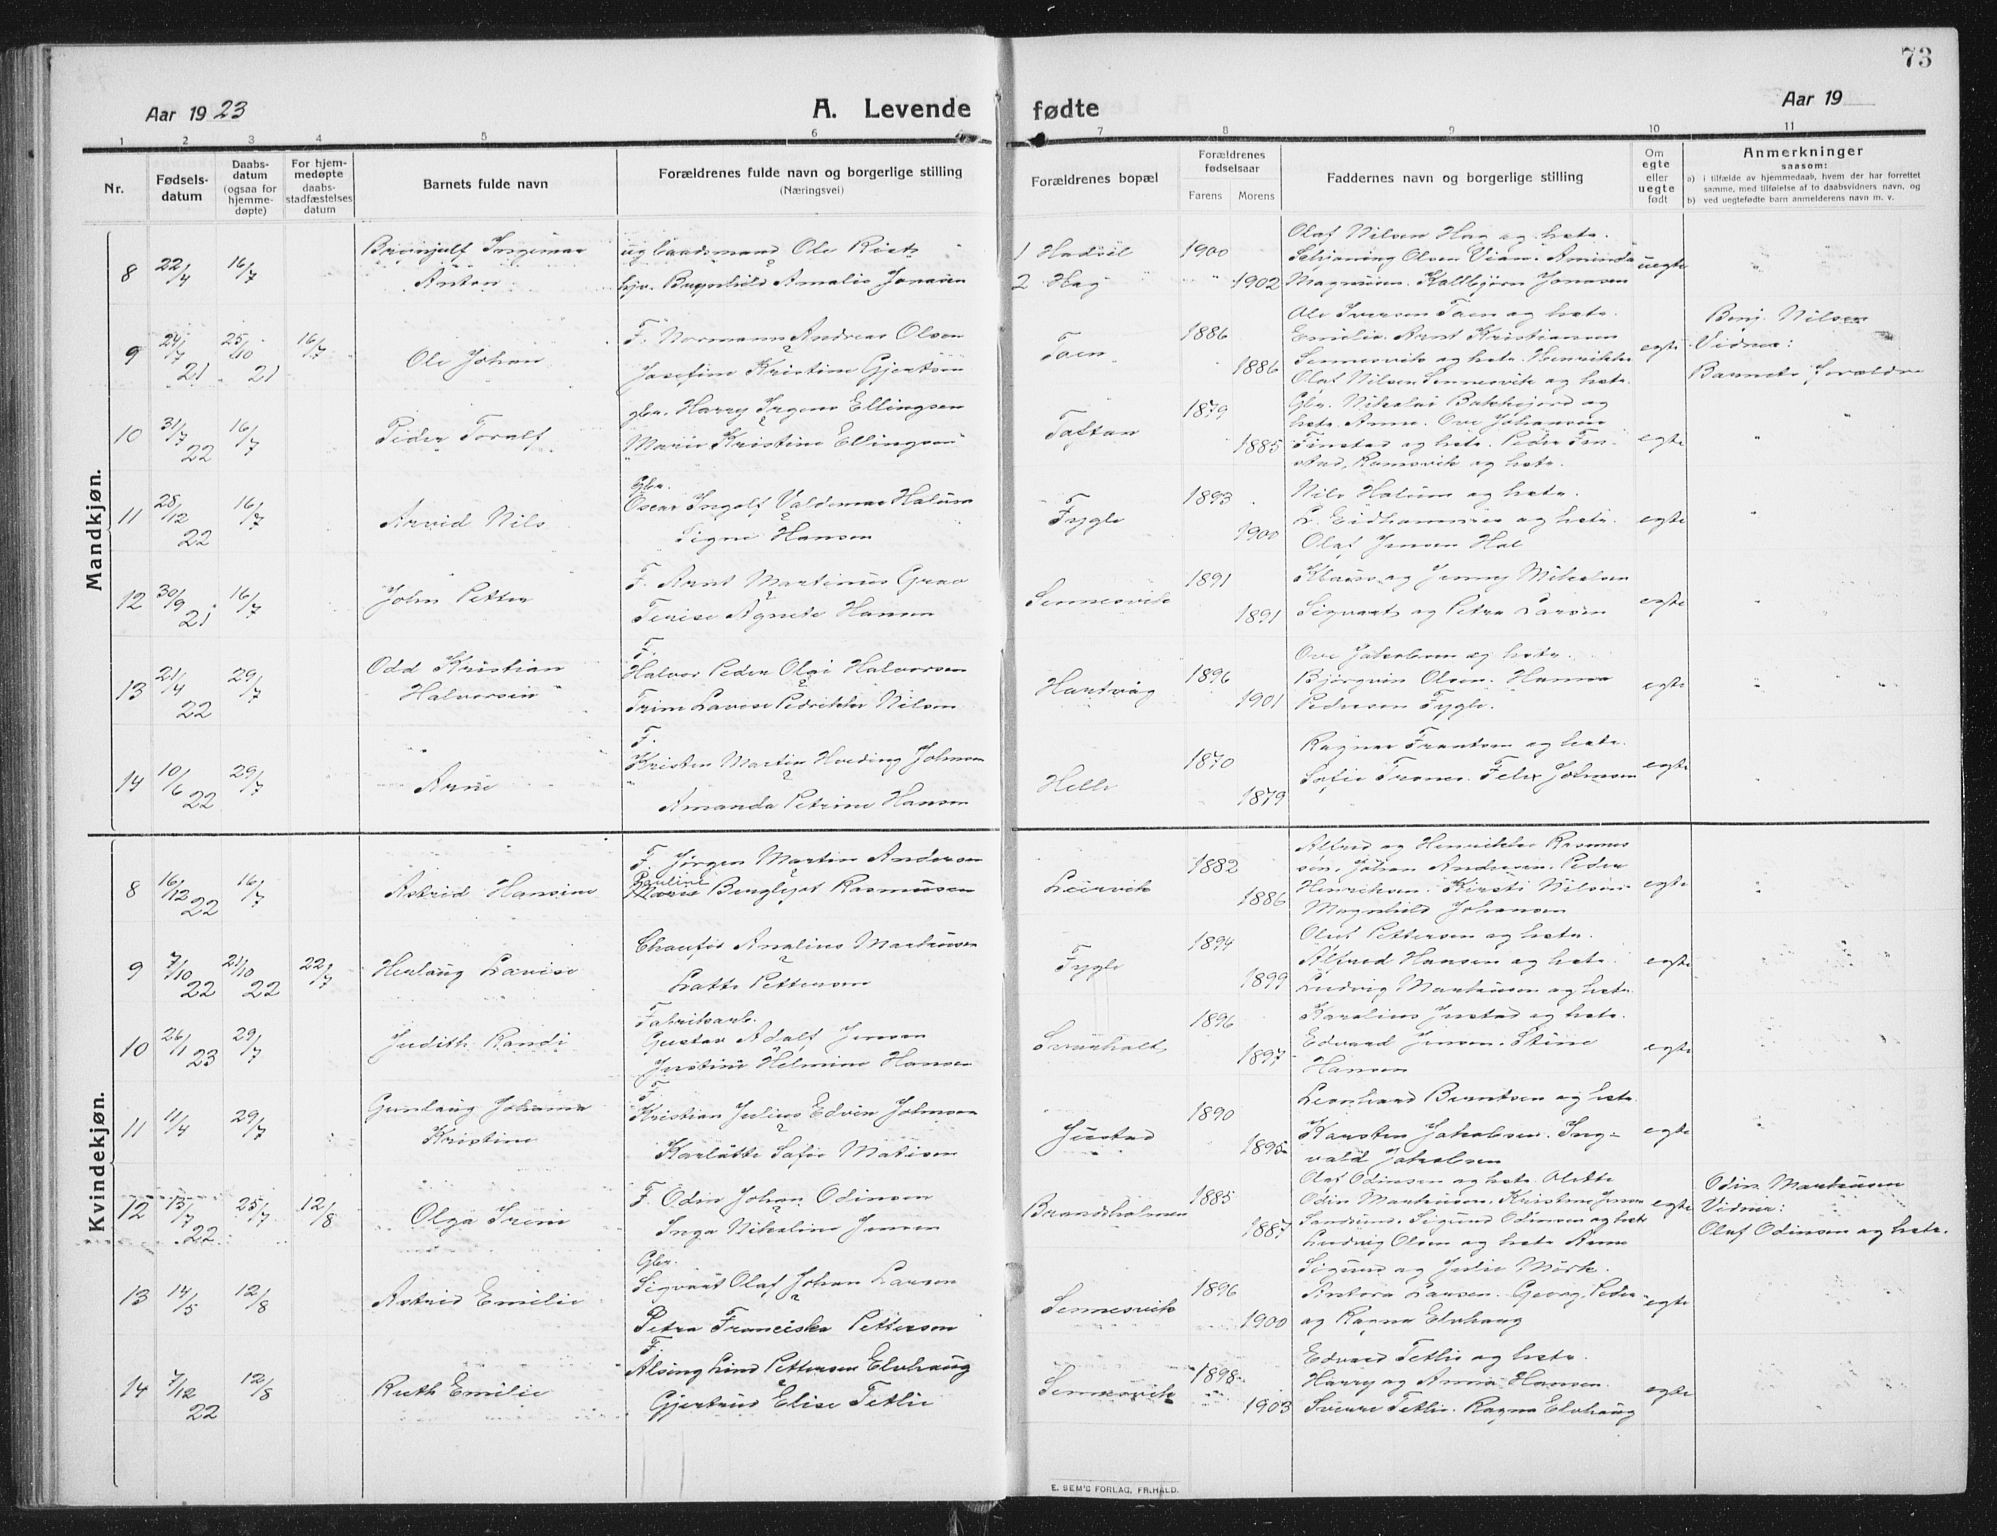 73
Aar 1923
A. Levende fødte
Aar 19
1 2 3 4 5 6 7 8 9 10 11
Nr.
Fødsels-
datum
Daabs-
datum
(ogsaa for
hjemme-
døpte)
For hjem-
medøpte
daabs-
stadfæstelses
datum
Barnets fulde navn
Forældrenes fulde navn og borgerlige stilling
(Næringsvei)
Forældrenes bopæl
Forældrenes
fødselsaar
Farens Morens
Faddernes navn og borgerlige stilling
Om
egte
eller
uegte
født
Anmerkninger
saasom:
a) i tilfælde av hjemmedaab, hvem der har forrettet
samme, med tilføielse av to daabsvidners navn, og
b) ved uegtefødte barn anmelderens navn m. v.
Mandkjøn.
8 22/4 16/7 Ingemar Anton
ug. baadsmand Ole
Amalie Jonasen
1
2 Hag
1900
1902
Olaf Nilsen Hag og hstr.
Olsen
Jonassen
uegte
9 24/7 21 25/10 21 16/7 Ole Johan
F. Normann Andreas Olsen
Josefine Kristine Gjertsen
Taen
1886
1886
Ole Iversen Taen og hstr.
Emilie. Arnt Kristiansen
Sennesvik og hstr. Henrikke
Olaf Nilsen Sennesvik og hstr.
egte
Benj. Nilsen
Vidner:
Barnets forældre
10 31/7 22 16/7 Peder Toralf
gbr. Harry Irgens Ellingsen
Marie Kristine Ellingsen
Toftan
1879
1885
Gbr. Nikolai og
hstr. Anne. Ove Johansen
Finstad og hstr. Peder Fin-
stad, Ramsvik og hstr.
egte
11 28/12 22 16/7 Arvid Nils
Gbr.
Oscar Ingolf Valdemar Halum
Signe Hansen
Fygle
1893
1900
Nils Halum og hstr.
L. Eidhammer og hstr.
Olaf Jensen Hol
egte
12 30/9 21 16/7 John Petter
F. Arnt Martinus Grav
Agnete Hansen
Sennesvik
1891
1891
Klaus og Jenny Mikalsen
Sigvart og Petra Larsen
egte
13 21/4 22 29/7 Odd Kristian
Halvorsen
F.
Halvor Peder Olai Halvorsen
Trine Lovise Pedrikke Nilsen
Hartvåg
1896
1901
Ove Jakobsen og hstr.
Bjørgvin Olsen. Hanna
Pedersen Fygle.
egte
14 10/6 22 29/7 Arne
F.
Kristen Martin Hveding Johnsen
Amanda Petrine Hansen
Helle
1870
1879
Ragnar Frantsen og hstr.
Sofie Trones. Felix Johnsen
egte
Kvindekjøn.
8 16/12 22 16/7 Astrid Hansine
F. Jørgen Martin Andersen
Pauline
Bergljot Rasmussen
Leirvik
1882
1886
Alfred og Henrikke Rasmus
sen. Johan Andersen. Peder
Henriksen. Kirsti Nilsen
Magnhild Johansen
egte
9 7/10 22 21/10 22 22/7 Herlaug Lovise
Chaufør Analius Martinsen
Lotte Pettersen
Fygle
1894
1899
Oluf Pettersen og hstr.
Alfred Hansen og hstr.
Ludvig Martinsen og hstr.
egte
10 26/1 23 29/7 Judith Randi
Fabrikarb.
Gustav Adolf Jensen
Justine Helmine Hansen
Svarholt
1896
1897
Karolius Justad og hstr.
Edvard Jensen. Stine
Hansen
egte
11 11/4 29/7 Gunlaug Johanna
Kristine
F.
Kristian Julius Edvin Johnsen
Karlotte Sofie Matisen
Justad
1890
1895
Leonhard Berntsen og hstr.
Karsten Jakobsen. Ing-
vald Jakobsen
egte
12 13/7 22 25/7 12/8 Olga Irene
F. Odin Johan Odinsen
Inga Nikoline Jensen
Brandsholmen
1885
1887
Olaf Odinsen og hstr. Olette
Odin Martinsen. Kristine Jensen
Sandsund. Sigurd Odinsen og hstr.
Ludvig Olsen og hstr. Anna
egte
Odin Martinsen
Vidner:
Olaf Odinsen og hstr.
13 14/5 12/8 Astrid Emilie
Gbr.
Sigvart Olaf Johan Larsen
Petra Franciska Pettersen
Sennesvik
1896
1900
Sigurd og Julie Mørk.
Antora Larsen. Georg, Peder
og Ragna Elvhaug
egte
14 7/12 22 12/8 Ruth Emilie
F.
Alsing Lind Pettersen Elvhaug
Gjertrud Elise Tetlie
Sennesvik
1898
1903
Edvard Tetlie og hstr.
Harry og Anna Hansen.
Sverre Tetlie. Ragna Elvhaug
egte
E. SEM'S FORLAG, FR.HALD.